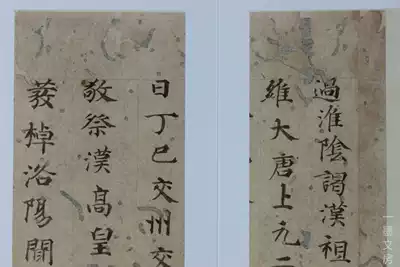 過淮陰謁漢祖
維大唐上元二
日丁巳交州交
敬祭漢高皇
棹洛陽開
一墨文房